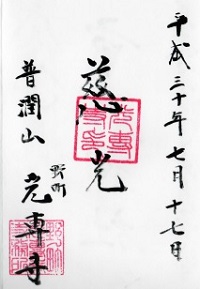 平成三十年七月十七日
慈光
普潤山
野町
光専寺